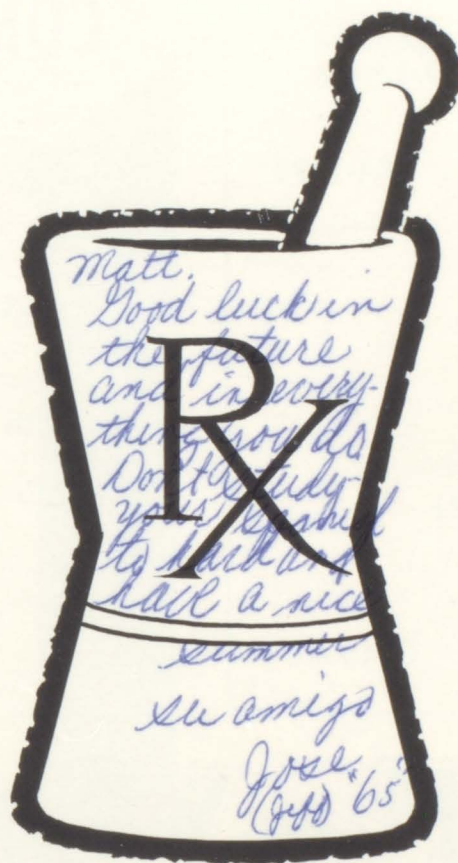 Matt.
Good luck in
the future
and in every-
thing you do.
Don't study
your Spanish
to hard and
have a nice
summer
su amigo
Jose
"65"
Rx